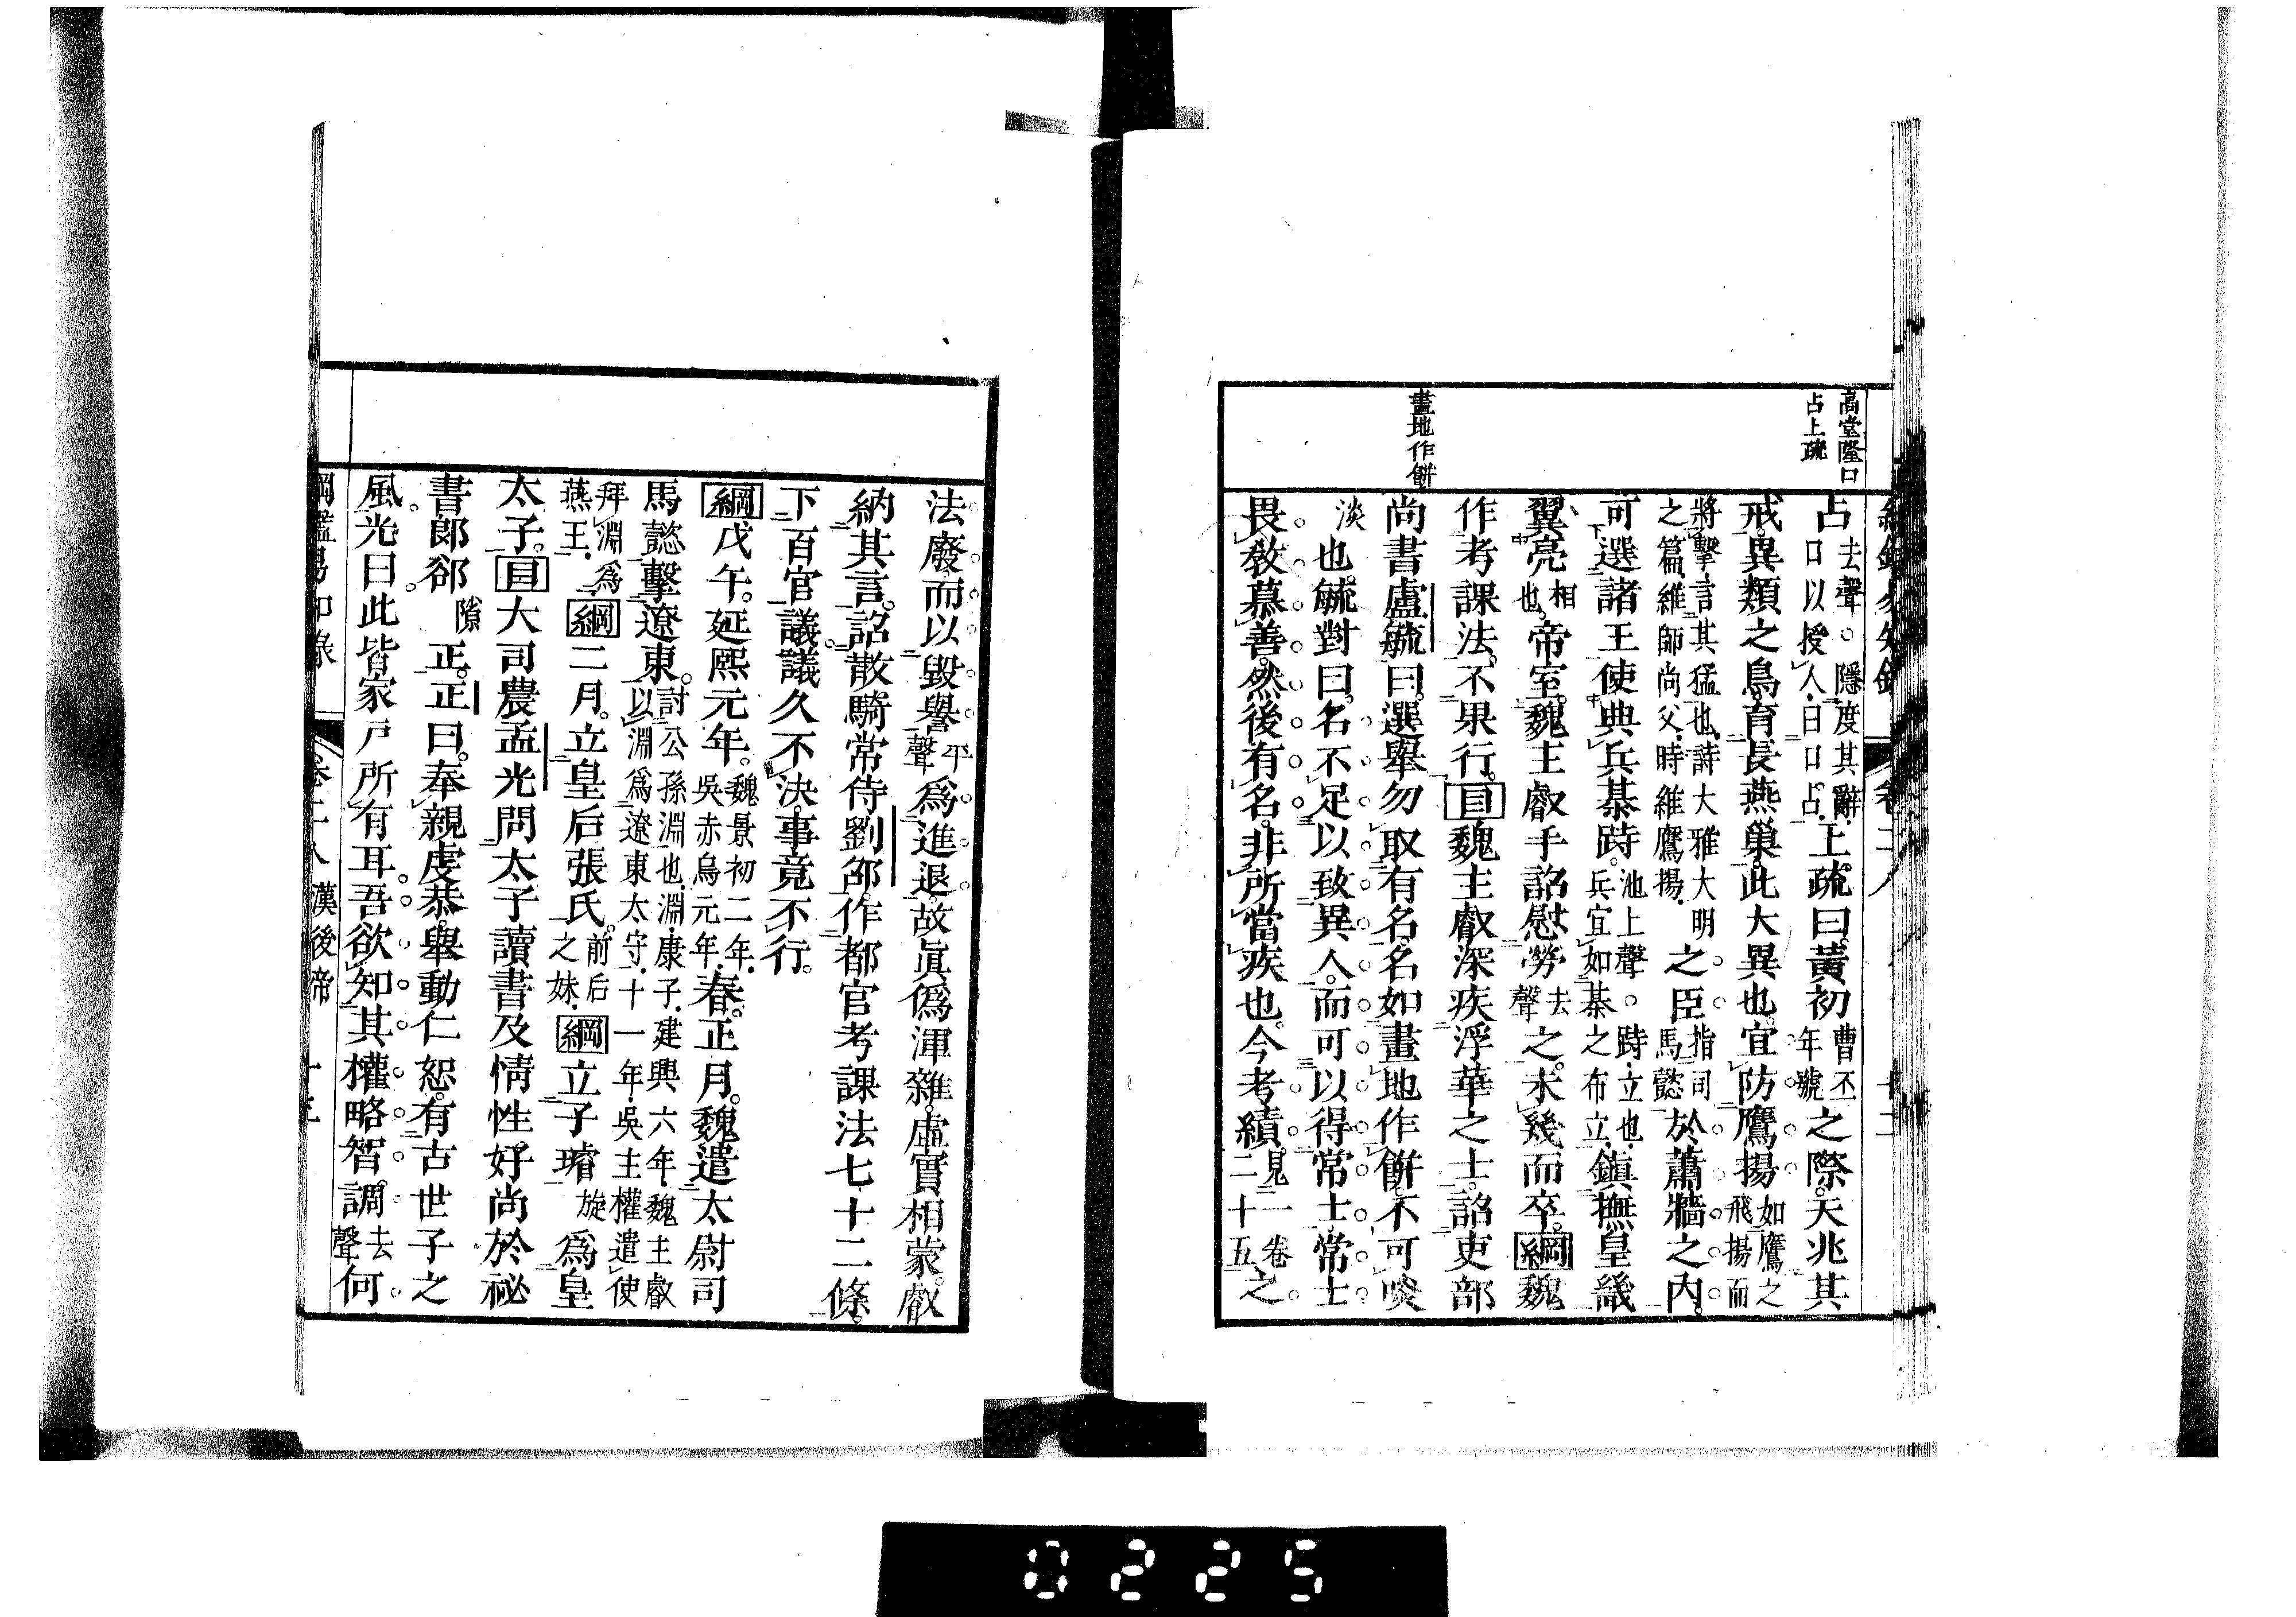 高堂隆口
占上疏
畫地作餠
占去聲。隱度其辭口以授人曰口占上疏曰黃初曹丕年號之際天兆其
戒異類之鳥育長燕巢此大異也宜防鷹揚如鷹之飛揚而
將擊言其猛也詩大雅大明之篇維師尚父時維鷹揚之臣指司馬懿於蕭牆之內
可選諸王使典兵棊跱池上聲。跱立也兵宜如棊之布立鎮撫皇畿
翼亮相也帝室魏主叡手詔慰勞去聲之未幾而卒綱魏
作考課法不果行目魏主叡深疾浮華之士詔吏部
尚書盧毓曰選舉勿取有名名如畫地作餠不可啖
淡也毓對曰名不足以致異人而可以得常士常士
畏敎慕善然後有名非所當疾也今考績見一卷二十五之
法廢而以毀譽平聲爲進退故眞僞渾雜虛實相蒙叡
納其言詔散騎常侍劉邵作都官考課法七十二條
下百官議議久不決事竟不行
綱戊午延熙元年魏景初二年吳赤烏元年春正月魏遣太尉司
馬懿擊遼東討公孫淵也淵康子建興六年魏主叡以淵爲遼東太守十一年吳主權遣使
拜淵爲燕王綱二月立皇后張氏前后之妹綱立子璿旋爲皇
太子目大司農孟光問太子讀書及情性好尚於祕
書郞郤隙正正曰奉親虔恭舉動仁恕有古世子之
風光曰此皆家戸所有耳吾欲知其權略智調去聲何
漢後帝
0225